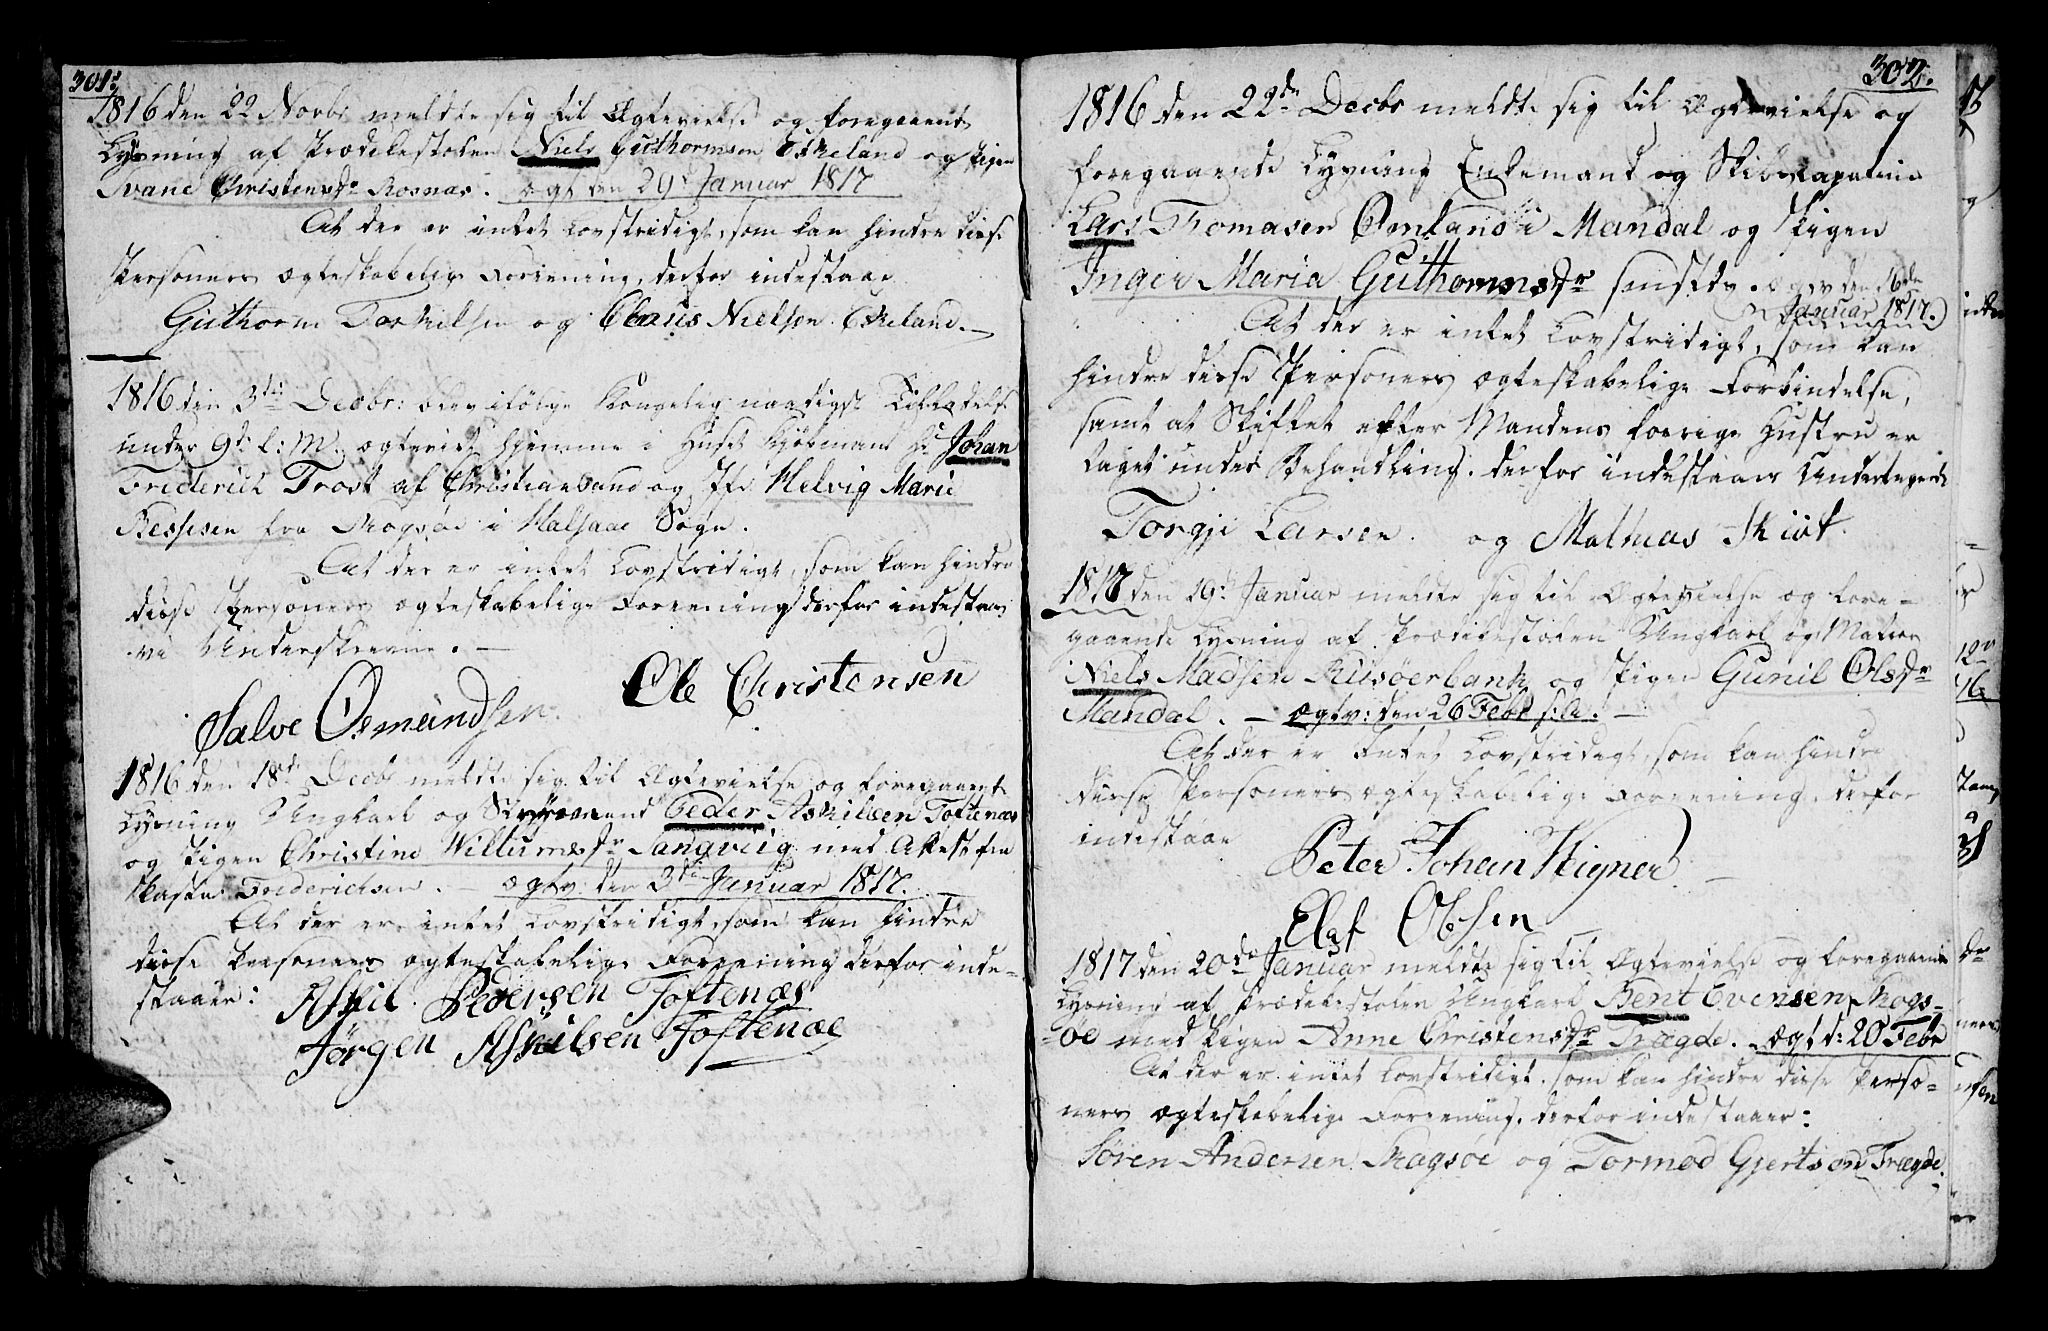 301.
1816 den 22 Novbr meldte sig til Ægtevielse og foregaaende
Lysning af Prædikestolen Niels Guthormsen Eskeland og Pigen
Svane Christensdr Rosnæs. Ægt den 29d Januar 1817
At der er intet Lovstridigt, som kan hindre disse
Personers ægteskabelig Foreening, derfor indestaae
Guthorm Torkilsen og Claus Nielsen Eskeland.
1816 den 3die Decbr: blev ifølge Kongelig naadigst Tilladelse
under 9d f: M. ægteviet hjemme i Huset Kjøbmand Hr Johan
Friderich Trost af Christiansand og Jfr Helvig Marie
Reshesen fra Skogsøe i Halsaae Sogn.
At der er intet Lovstridigt, som kan hindre
disse Personers ægteskabelige Foreening derfor indestaar
vi Underskrevne.
Ole Christensen
Salve Osmundsen.
1816 den 18d Decbr meldte sig til Ægtevielse og foregaaende
Lysning Ungkarl og Peder Askilsen Toftenæs
og Pigen Christine Willumsdr Sangviig med Attest fra
Frederichsen. Ægtv: den 3die Januar 1817.
At der er intet Lovstridigt, som kan hindre
disse Personers ægteskabelige Foreening derfor inde-
staaer: Askil Pedersen Toftenæs
Jörgen Askilsen Toftenæs
302.
1816 den 22de Decbr meldte sig til Ægtevielse og
foregaaende Lysning Enkemand og Skibskapatein
Lars Thomasen Omland i Mandal og Pigen
Inger Maria Guthormsdr sammesteds. Ægtv den 16de
Januar 1817.
At der er intet Lovstridigt, som kan
hindre disse Personers ægteskabelige Forbindelse,
samt at Skiftet efter Mandens forrige Hustru er
taget under Behandling, derfor indestaaer Undertegnede
Torgje Larsen. og Mathias
1817 den 19d Januar meldte sig til Ægtevielse og fore-
gaaende Lysning af Prædikestolen Ungkarl og Matros
Niels Madsen Risøerbank og Pigen Gunil Olsdr
Mandal. Ægtv: den 26 Febr s: A.
At der er Intet Lovstridigt, som kan hindre
disse Personers ægteskabelige Foreening, derfor
indestaae
Peter Johan Heigner
Elef Olsen
1817 den 20de Januar meldte sig til Ægtevielse og foregaaende
Lysning af Prædikestolen Ungkarl Bent Evensen Skogs-
øe med Pigen Anne Christensdr Trægde. Ægt d: 20 Febr
At der er intet Lovstridigt, som kan hindre disse Perso-
ners ægteskabelige Foreening, derfor indestaaer:
Sören Andersen Skogsøe og Tormod Gjertson Trægde.